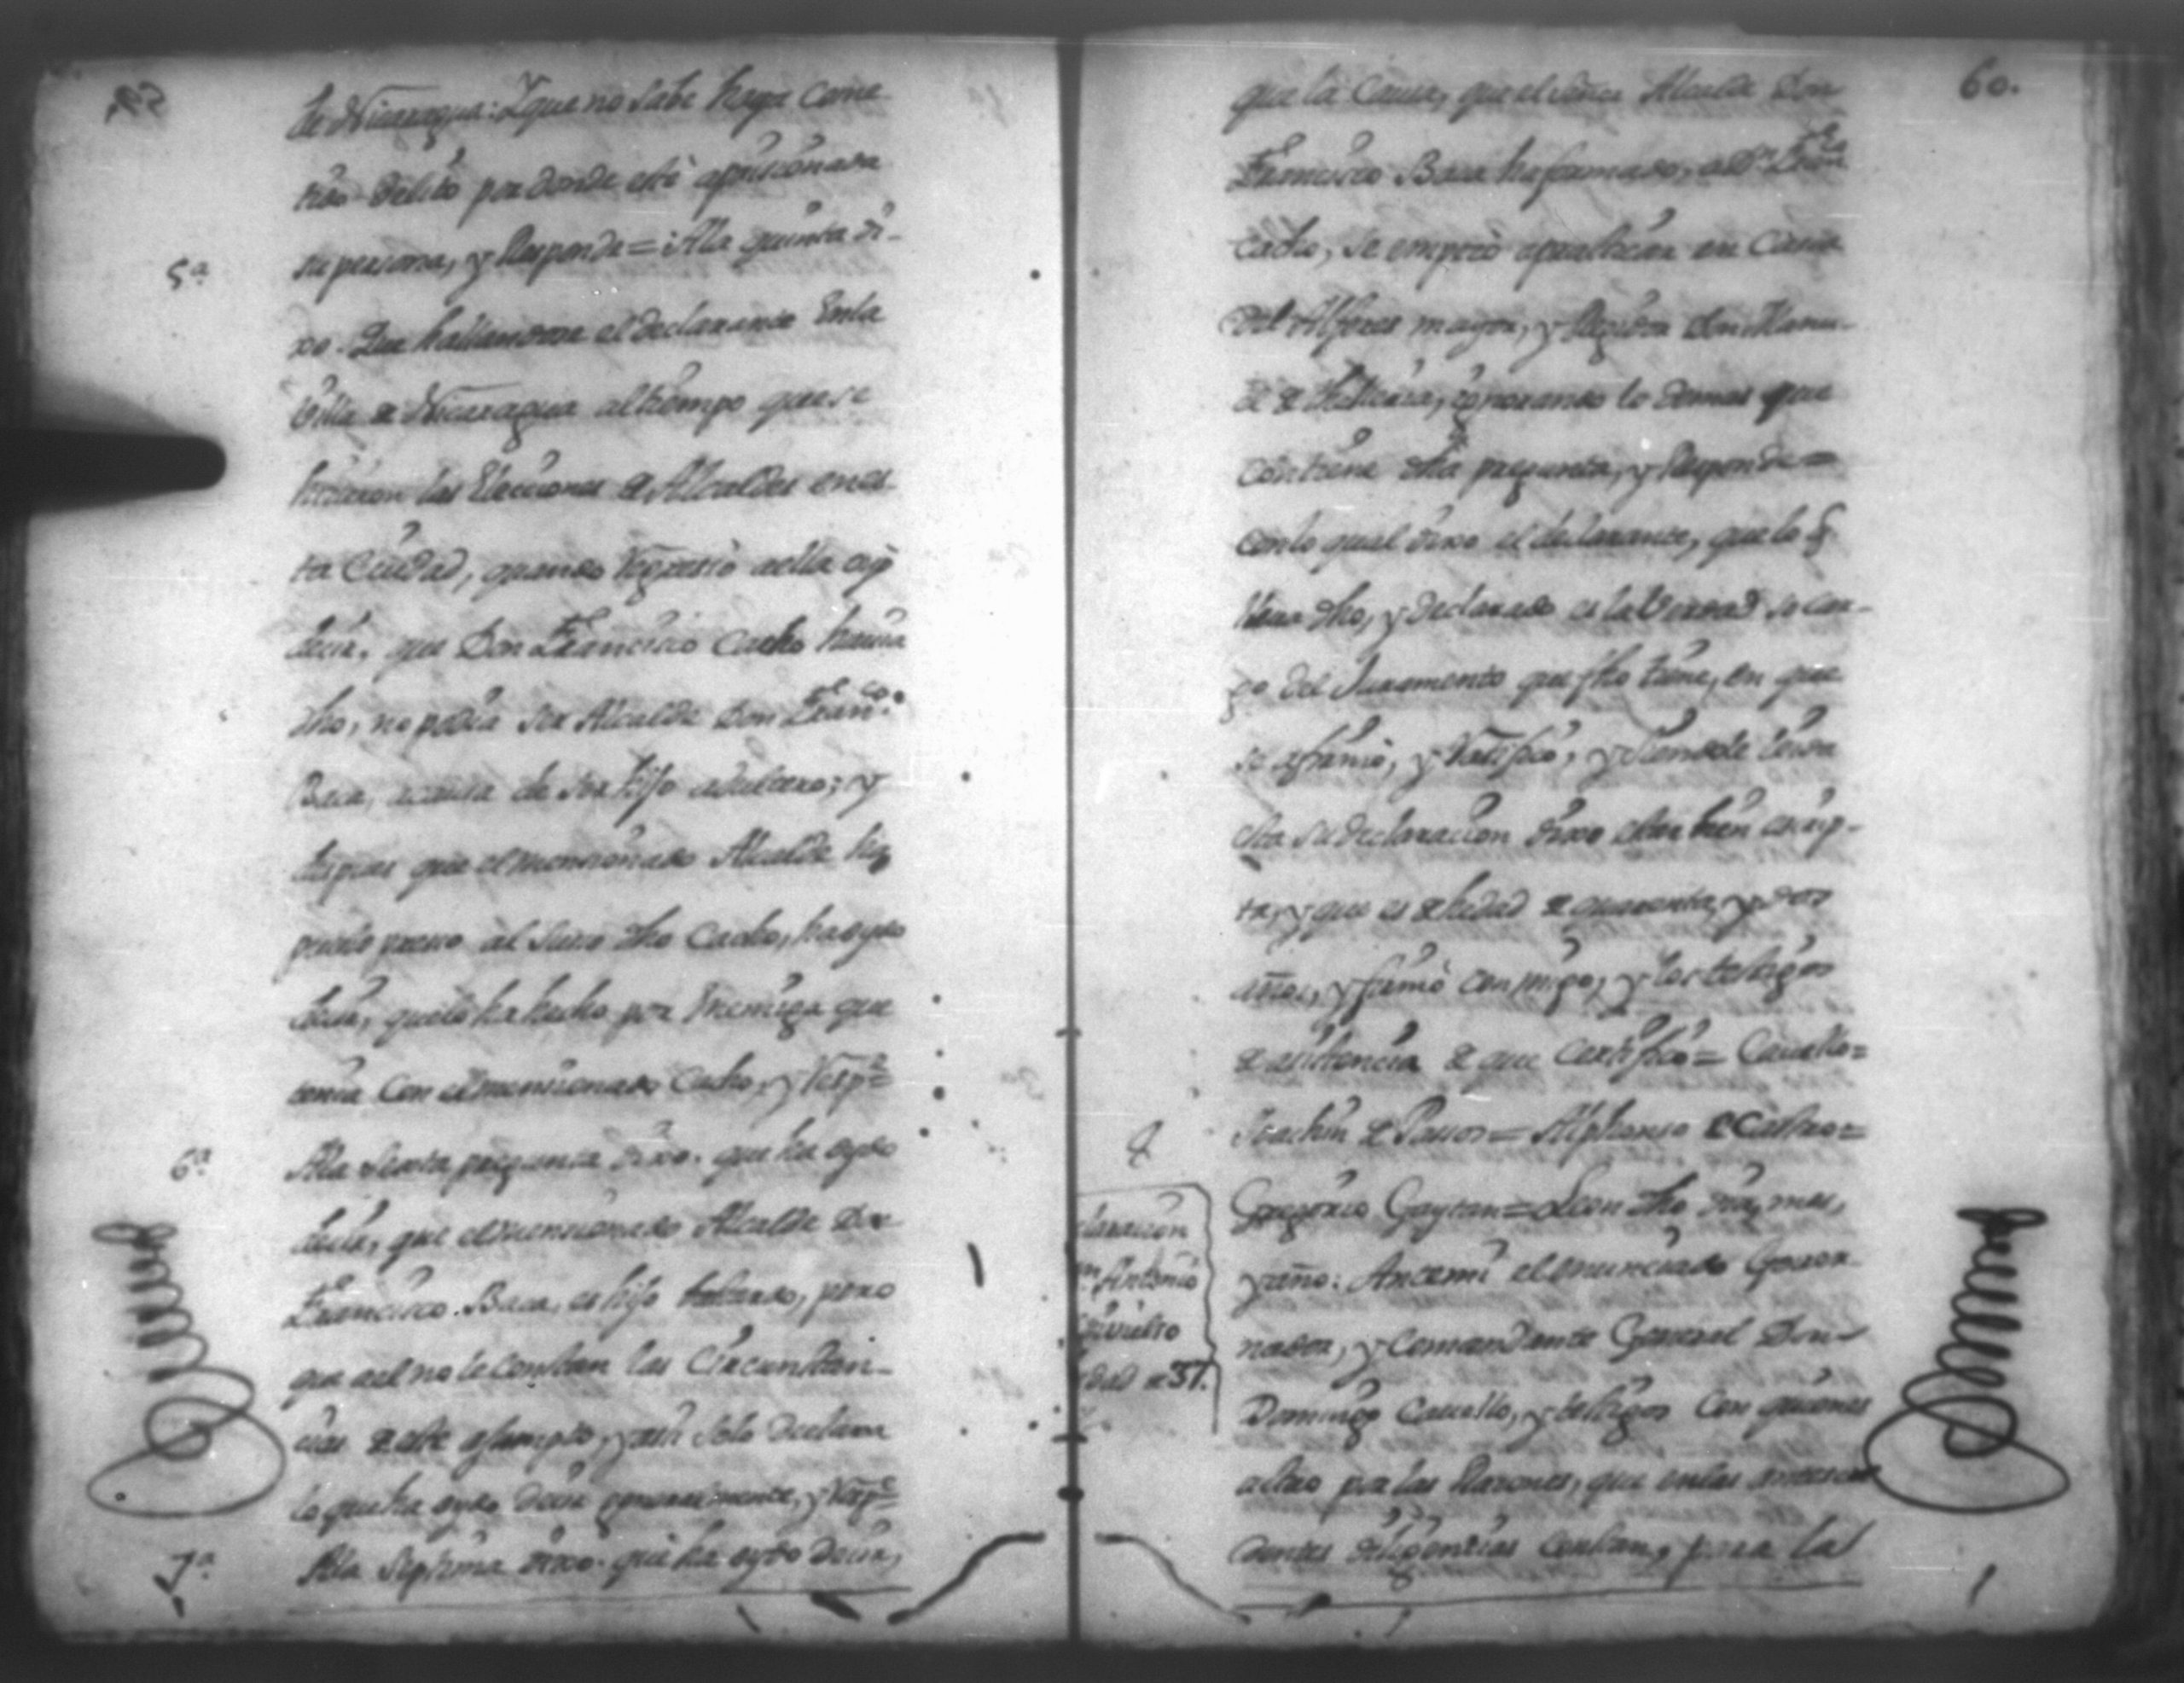 de Nicaragua: Y que no sabe haya come-
tido delito por donde esté aprisionada
5ª
su persona, y Responde = A la quinta di-
xo. Que hallandose el declarante en la
Villa de Nicaragua al tiempo que se
hizieron las Elecciones de Alcaldes en es-
ta Ciudad, quando Regresó a ella oyó
decir, que Don Francisco Cacho havia
dho, no podia ser Alcalde Don Franco.
Baca, a causa de ser hijo adultero; y
despues que el mencionado Alcalde
preso al suso dho Cacho, ha oydo
decir, que lo ha hecho por Enemiga que
tenia con el mencionado Cacho, y Respe
6ª
A la Sexta pregunta dixo. que ha oydo
decir, que el mencionado Alcalde Don
Francisco Baca, es hijo bastardo, pero
que a el no le constan las Circunstan-
cias de este assumpto, y assi solo declara
lo que ha oydo decir generalmente, y Respe
7ª
A la Septima dixo. que ha oydo decir,
60.
que la Causa, que el señor Alcalde Don
Francisco Baca ha formado, a Dn Franco
Cacho, se empezó a practicar en Casa
del Alferez mayor, y Regidor Don Manu-
el de, ignorando lo demas que
contiene dha pregunta, y Responde =
con lo qual dixo el declarante, que lo q.
lleva dho, y declarado es la Verdad so car-
go del Juramento que fho tiene, en que
se afirmó, y Ratificó, y siendole leida
esta su declaracion dixo estar bien escrip-
ta, y que es de hedad de quarenta, y dos
años, y firmó con migo, y los testigos
de assistencia de que Certifico = Cavello =
Joachin de Passos = Alphonso de Castro =
Gregorio Gaytan = Leon dho dia, mes,
y año: Ante mi el enunciado Gover-
nador, y Comandante General Don
Domingo Cavello, y testigos con quienes
actuo por las Razones, que en las antece-
dentes diligencias constan, para la
claracion
n Antonio
dad de 37.